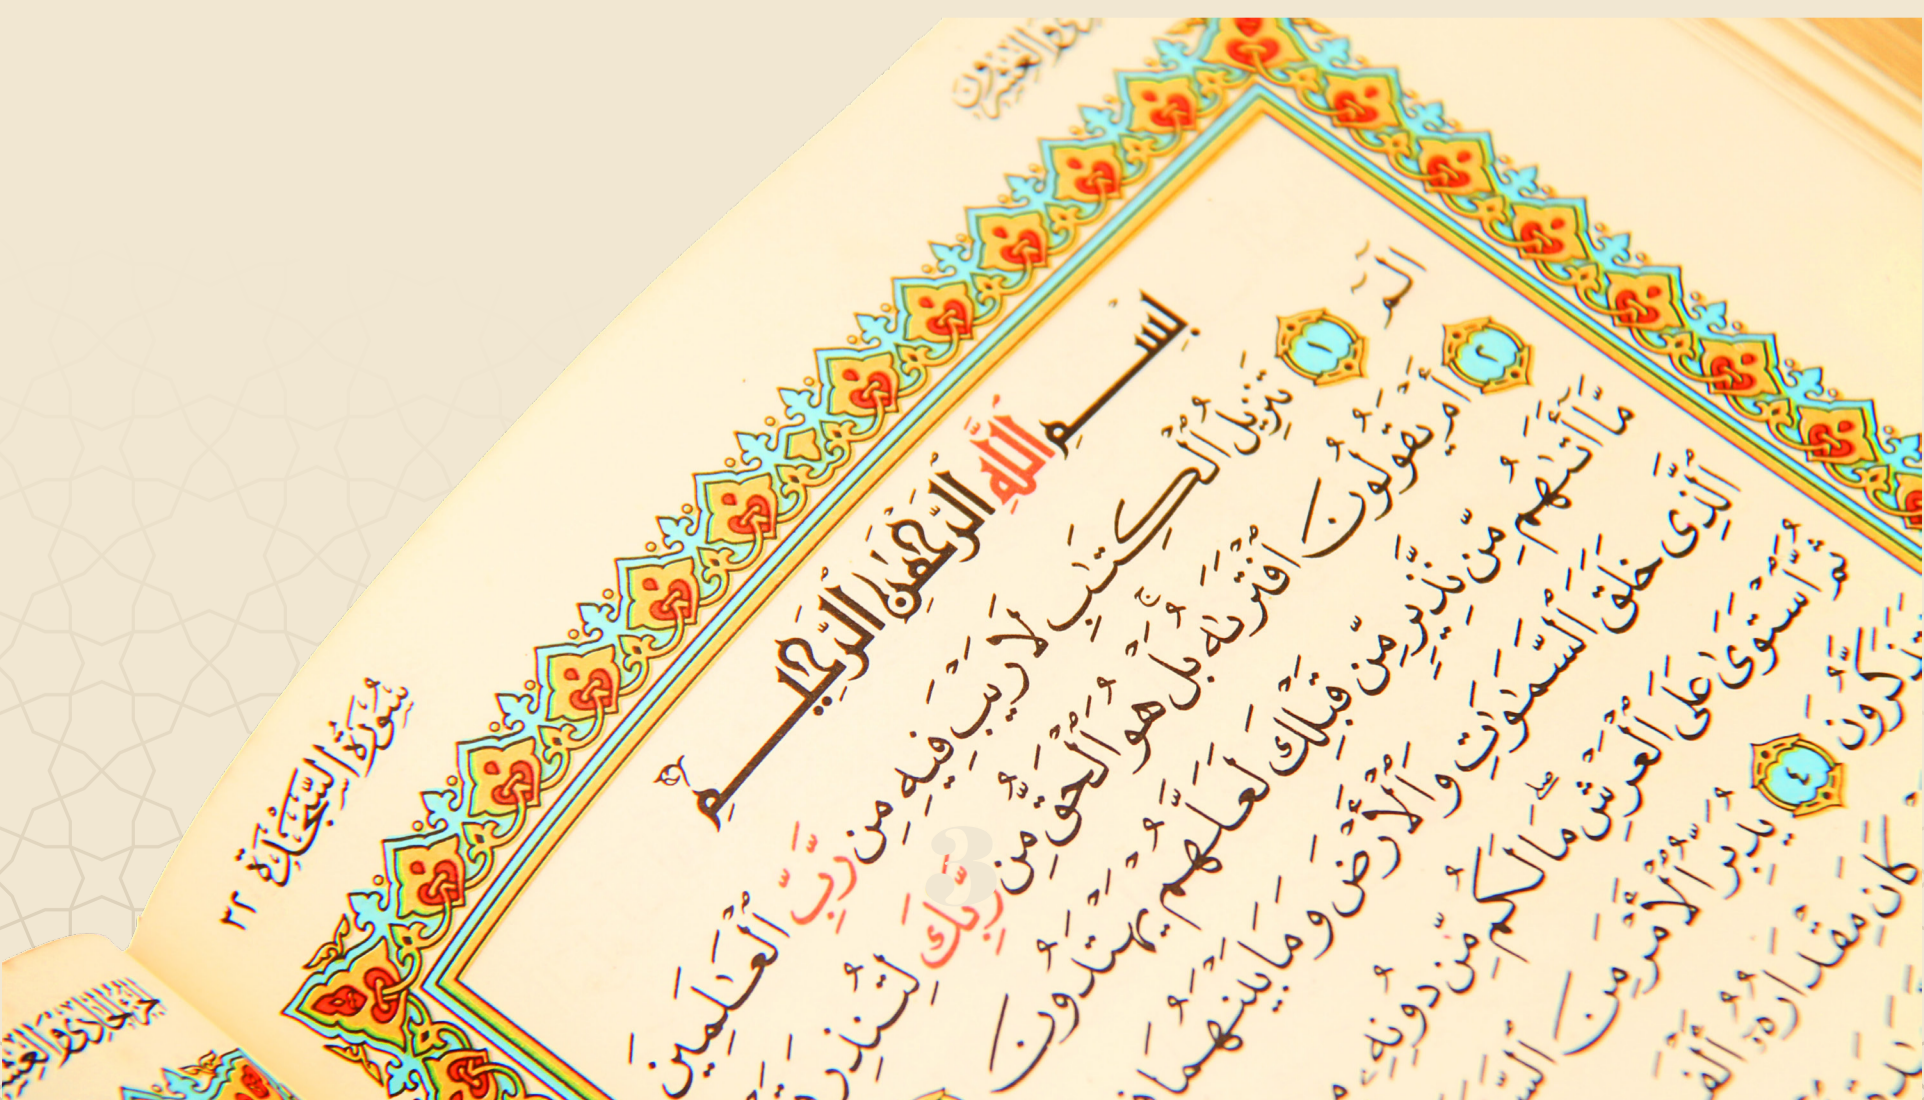 سُورَةُ السَّجْدَةِ ٣٢
بِسْمِ اللَّهِ الرَّحْمَٰنِ الرَّحِيمِ
الٓمٓ ١ تَنزِيلُ ٱلْكِتَٰبِ لَا رَيْبَ فِيهِ مِن رَّبِّ ٱلْعَٰلَمِينَ
٢ أَمْ يَقُولُونَ ٱفْتَرَىٰهُ بَلْ هُوَ ٱلْحَقُّ مِن رَّبِّكَ لِتُنذِرَ
مَّآ أَتَىٰهُم مِّن نَّذِيرٍ مِّن قَبْلِكَ لَعَلَّهُمْ يَهْتَدُونَ
ٱلَّذِى خَلَقَ ٱلسَّمَٰوَٰتِ وَٱلْأَرْضَ وَمَا بَيْنَهُمَا
ثُمَّ ٱسْتَوَىٰ عَلَى ٱلْعَرْشِ مَا لَكُم مِّن دُونِهِۦ
تَتَذَكَّرُونَ ٤ يُدَبِّرُ ٱلْأَمْرَ مِنَ
كَانَ مِقْدَارُهُۥٓ أَلْفَ
3